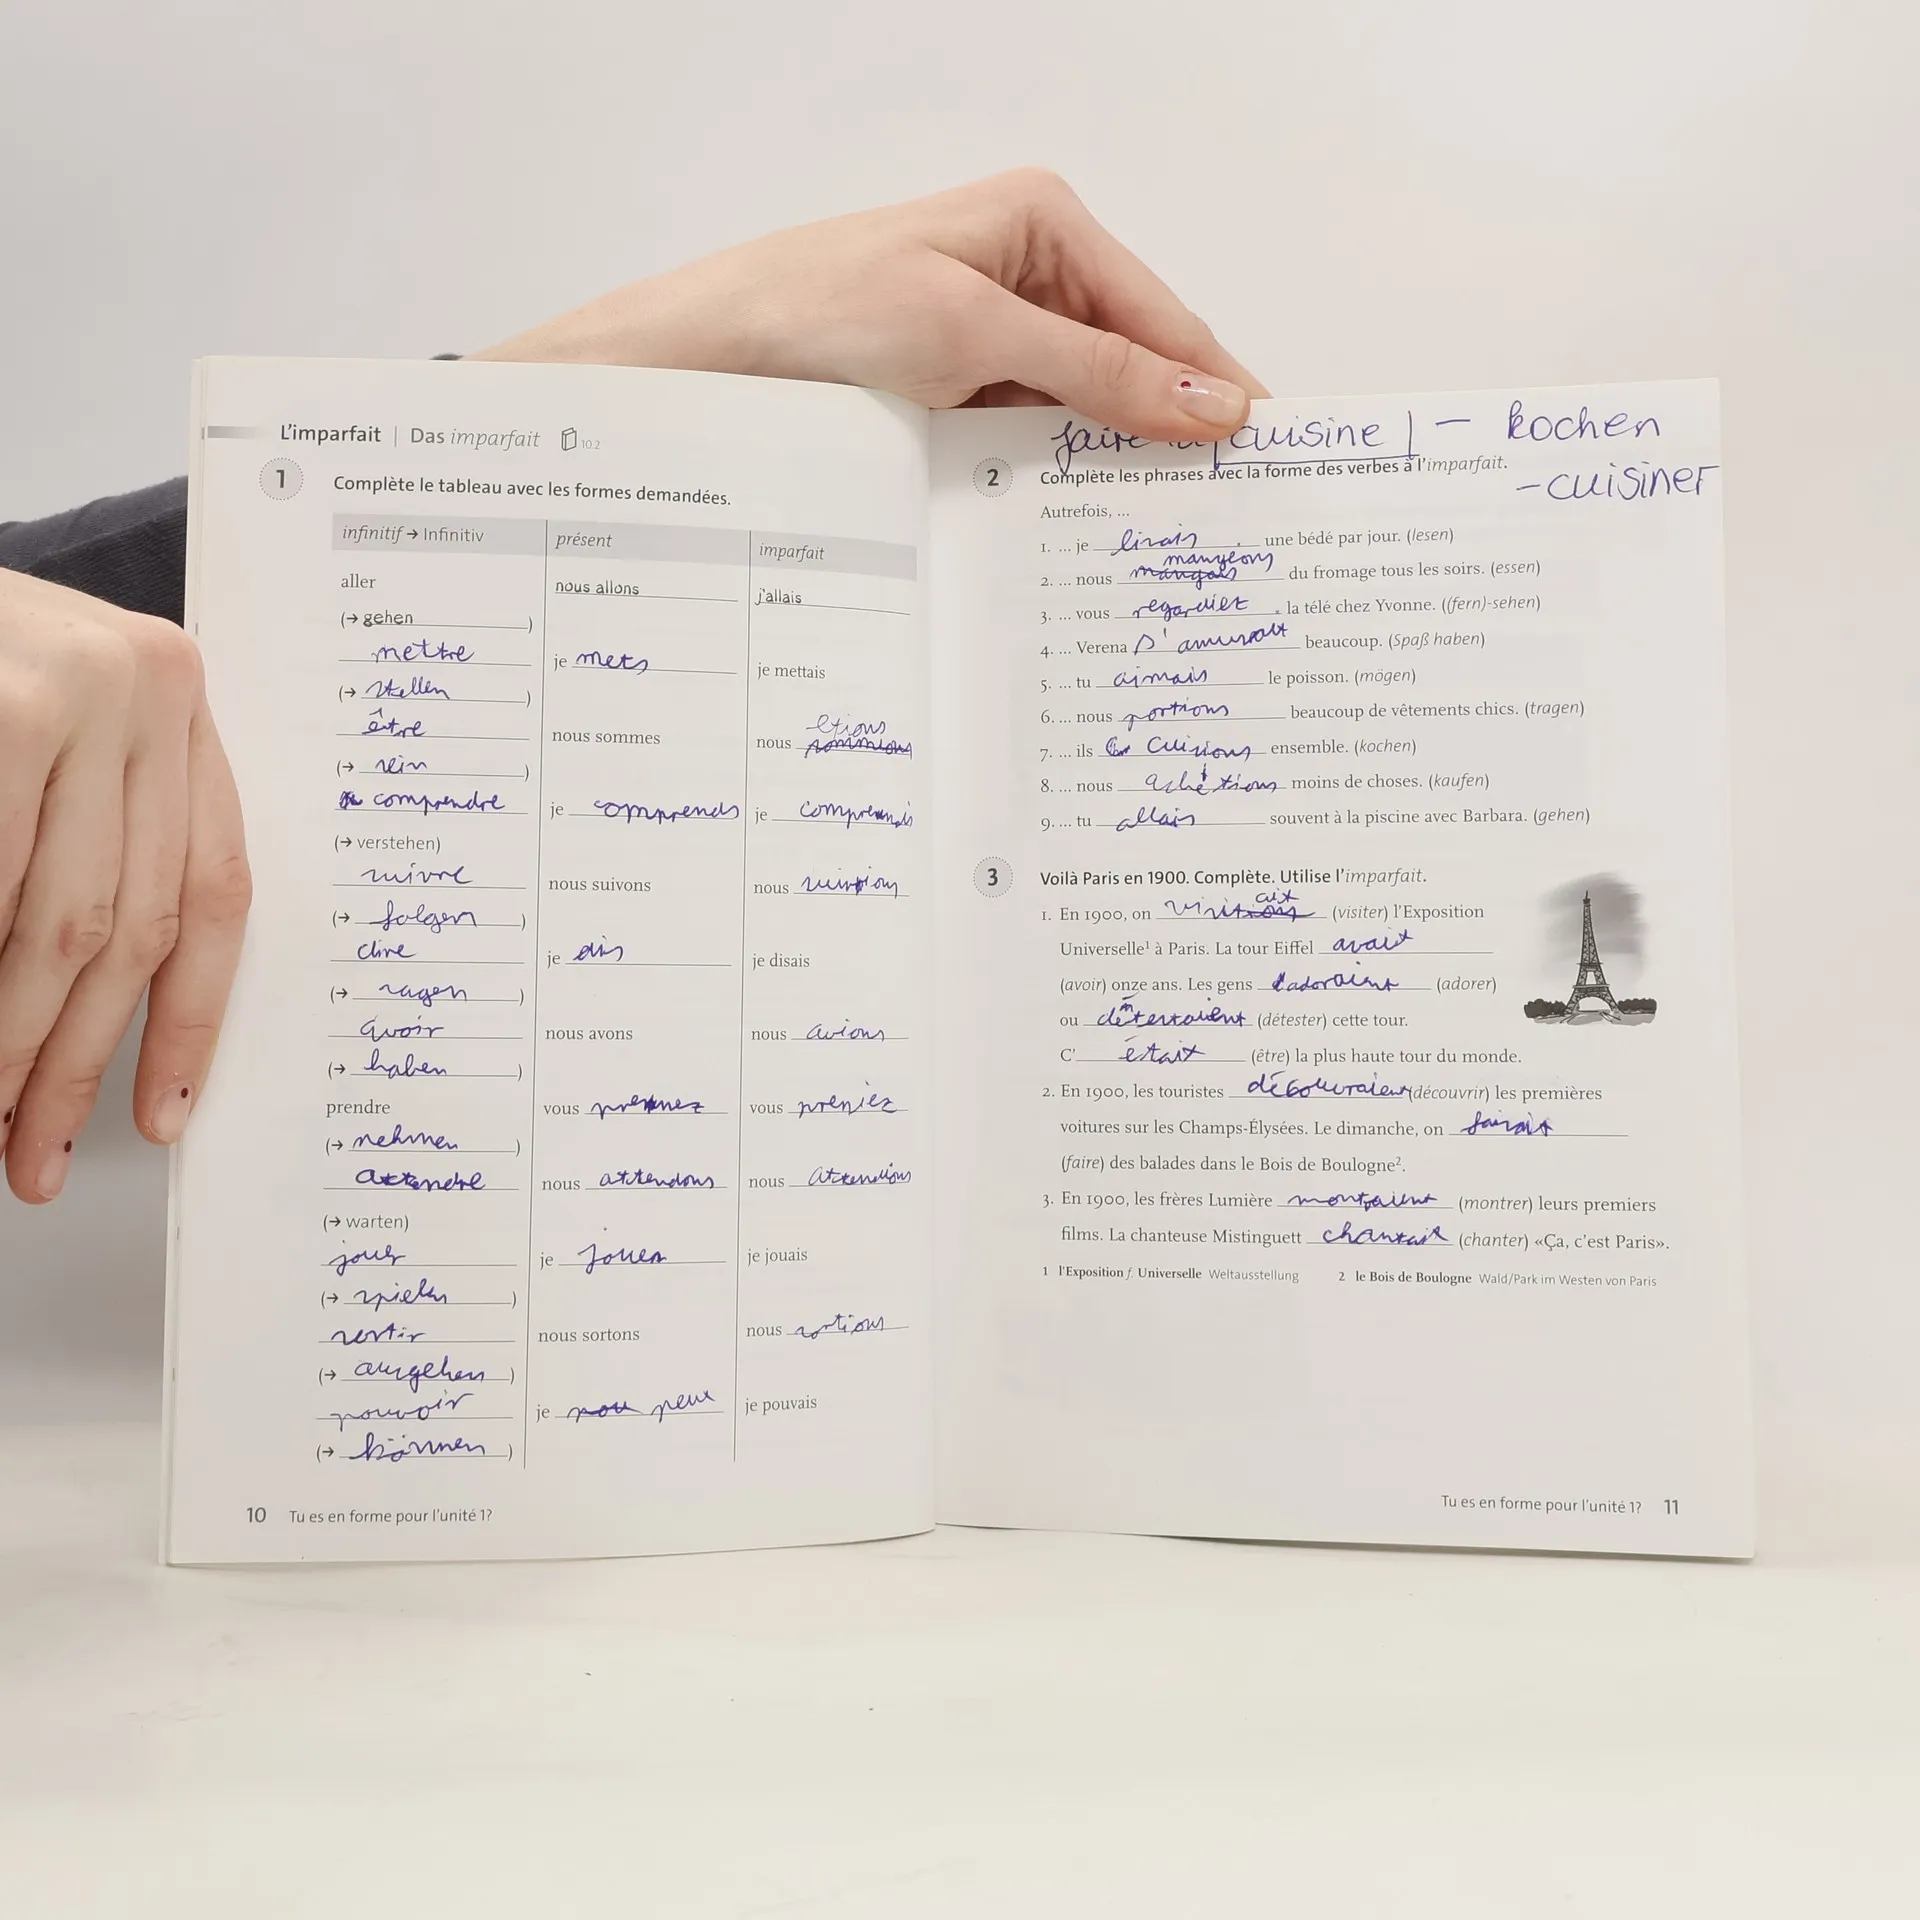 L'imparfait | Das imparfait 10.2
1 Complète le tableau avec les formes demandées.
infinitif → Infinitiv présent imparfait
aller nous allons j'allais
(→ gehen)
mettre je mets je mettais
(→ stellen)
être nous sommes nous etions
(→ sein)
comprendre je comprends je
(→ verstehen)
suivre nous suivons nous
(→ folgen)
dire je dis je disais
(→ sagen)
avoir nous avons nous avions
(→ haben)
prendre vous prennez vous preniez
(→ nehmen)
attendre nous attendons nous attendions
(→ warten)
jouer je je jouais
(→ spielen)
sortir nous sortons nous sortions
(→ ausgehen)
pouvoir je peux je pouvais
(→ können)
10 Tu es en forme pour l'unité 1?
faire cuisine | - kochen
- cuisiner
2 Complète les phrases avec la forme des verbes à l'imparfait.
Autrefois, ...
1. ... je lirais une bédé par jour. (lesen)
2. ... nous mangeons du fromage tous les soirs. (essen)
3. ... vous regardiet la télé chez Yvonne. ((fern)-sehen)
4. ... Verena s'amusait beaucoup. (Spaß haben)
5. ... tu aimais le poisson. (mögen)
6. ... nous portions beaucoup de vêtements chics. (tragen)
7. ... ils cuisions ensemble. (kochen)
8. ... nous moins de choses. (kaufen)
9. ... tu allais souvent à la piscine avec Barbara. (gehen)
3 Voilà Paris en 1900. Complète. Utilise l'imparfait.
1. En 1900, on visitait (visiter) l'Exposition
Universelle¹ à Paris. La tour Eiffel avait
(avoir) onze ans. Les gens adoraient (adorer)
ou détestaient (détester) cette tour.
C' était (être) la plus haute tour du monde.
2. En 1900, les touristes (découvrir) les premières
voitures sur les Champs-Élysées. Le dimanche, on faisait
(faire) des balades dans le Bois de Boulogne².
3. En 1900, les frères Lumière (montrer) leurs premiers
films. La chanteuse Mistinguett chantait (chanter) «Ça, c'est Paris».
1 l'Exposition f. Universelle Weltausstellung 2 le Bois de Boulogne Wald/Park im Westen von Paris
Tu es en forme pour l'unité 1? 11